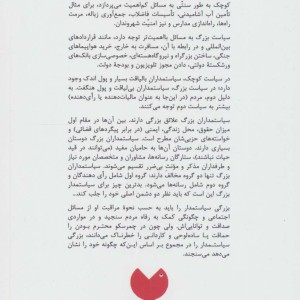 کوچک به طور سنّتی به مسائل کم‌اهمیت می‌پردازد، برای مثال
تأمین آب آشامیدنی، تأسیسات فاضلاب، جمع‌آوری زباله، مرمت
راه‌ها، راه‌اندازی مدارس و نیز امنیّت شهروندان.
سیاست بزرگ به مسائل بااهمیت‌تر توجه دارد، مانند قراردادهای
بین‌المللی و در رابطه با آن، مسافرت به خارج، خرید هواپیماهای
جنگی، ساختن بزرگراه و نیروگاه هسته‌ای، خصوصی‌سازی بانک‌های
ورشکستهٔ دولتی، دادن مجوز تلویزیون و بودجهٔ دولت.
در سیاست کوچک، سیاستمداران بالیاقت بسیار و پول اندک وجود
دارد؛ در سیاست بزرگ، سیاستمداران بی‌لیاقت و پول هنگفت. به
دلیل دوم، مردم (در این‌جا به عنوان مالیات‌دهنده یا رأی‌دهنده)
بیشتر به سیاست دوم توجه می‌کنند.
سیاستمداران بزرگ علائق بزرگی دارند. بین آن‌ها در مقام اول
میزان حقوق، محل زندگی، ایمنی (در برابر پیگردهای قضائی) و
خواسته‌های حزبی‌شان مطرح است. سیاستمداران بزرگ دوستان
بسیاری دارند. دوستان آن‌ها به حامیان مفید (می‌توانند در قید
حیات نباشند)، ستارگان رسانه‌ها، مشاوران و متخصصان مورد نیاز
و طرفداران متذکر و مؤنث بی‌ضرر تقسیم می‌شوند. سیاستمداران
بزرگ تنها دو گروه مخالف دارند: گروه اول شامل رأی دهندگان و
گروه دوم شامل رسانه‌ها می‌شود. بدترین چیز برای سیاستمدار
بزرگ این است که باید نظر دو دشمن اصلی خود را جلب کند...
بزرگی سیاستمدار را باید به حسب نحوهٔ مراقبت او از مسائل
اجتماعی و چگونگی کمک به رفاه مردم سنجید و در مواردی
صداقت و توانایی‌اش. ولی چون در چمرسکو محترم بودن را
حماقت یا ساده‌لوحی و کاردانی را خطرناک می‌دانند، بزرگی
سیاستمدار را در مجموع بر اساس این‌که چگونه خود را نشان
می‌دهد می‌سنجند.